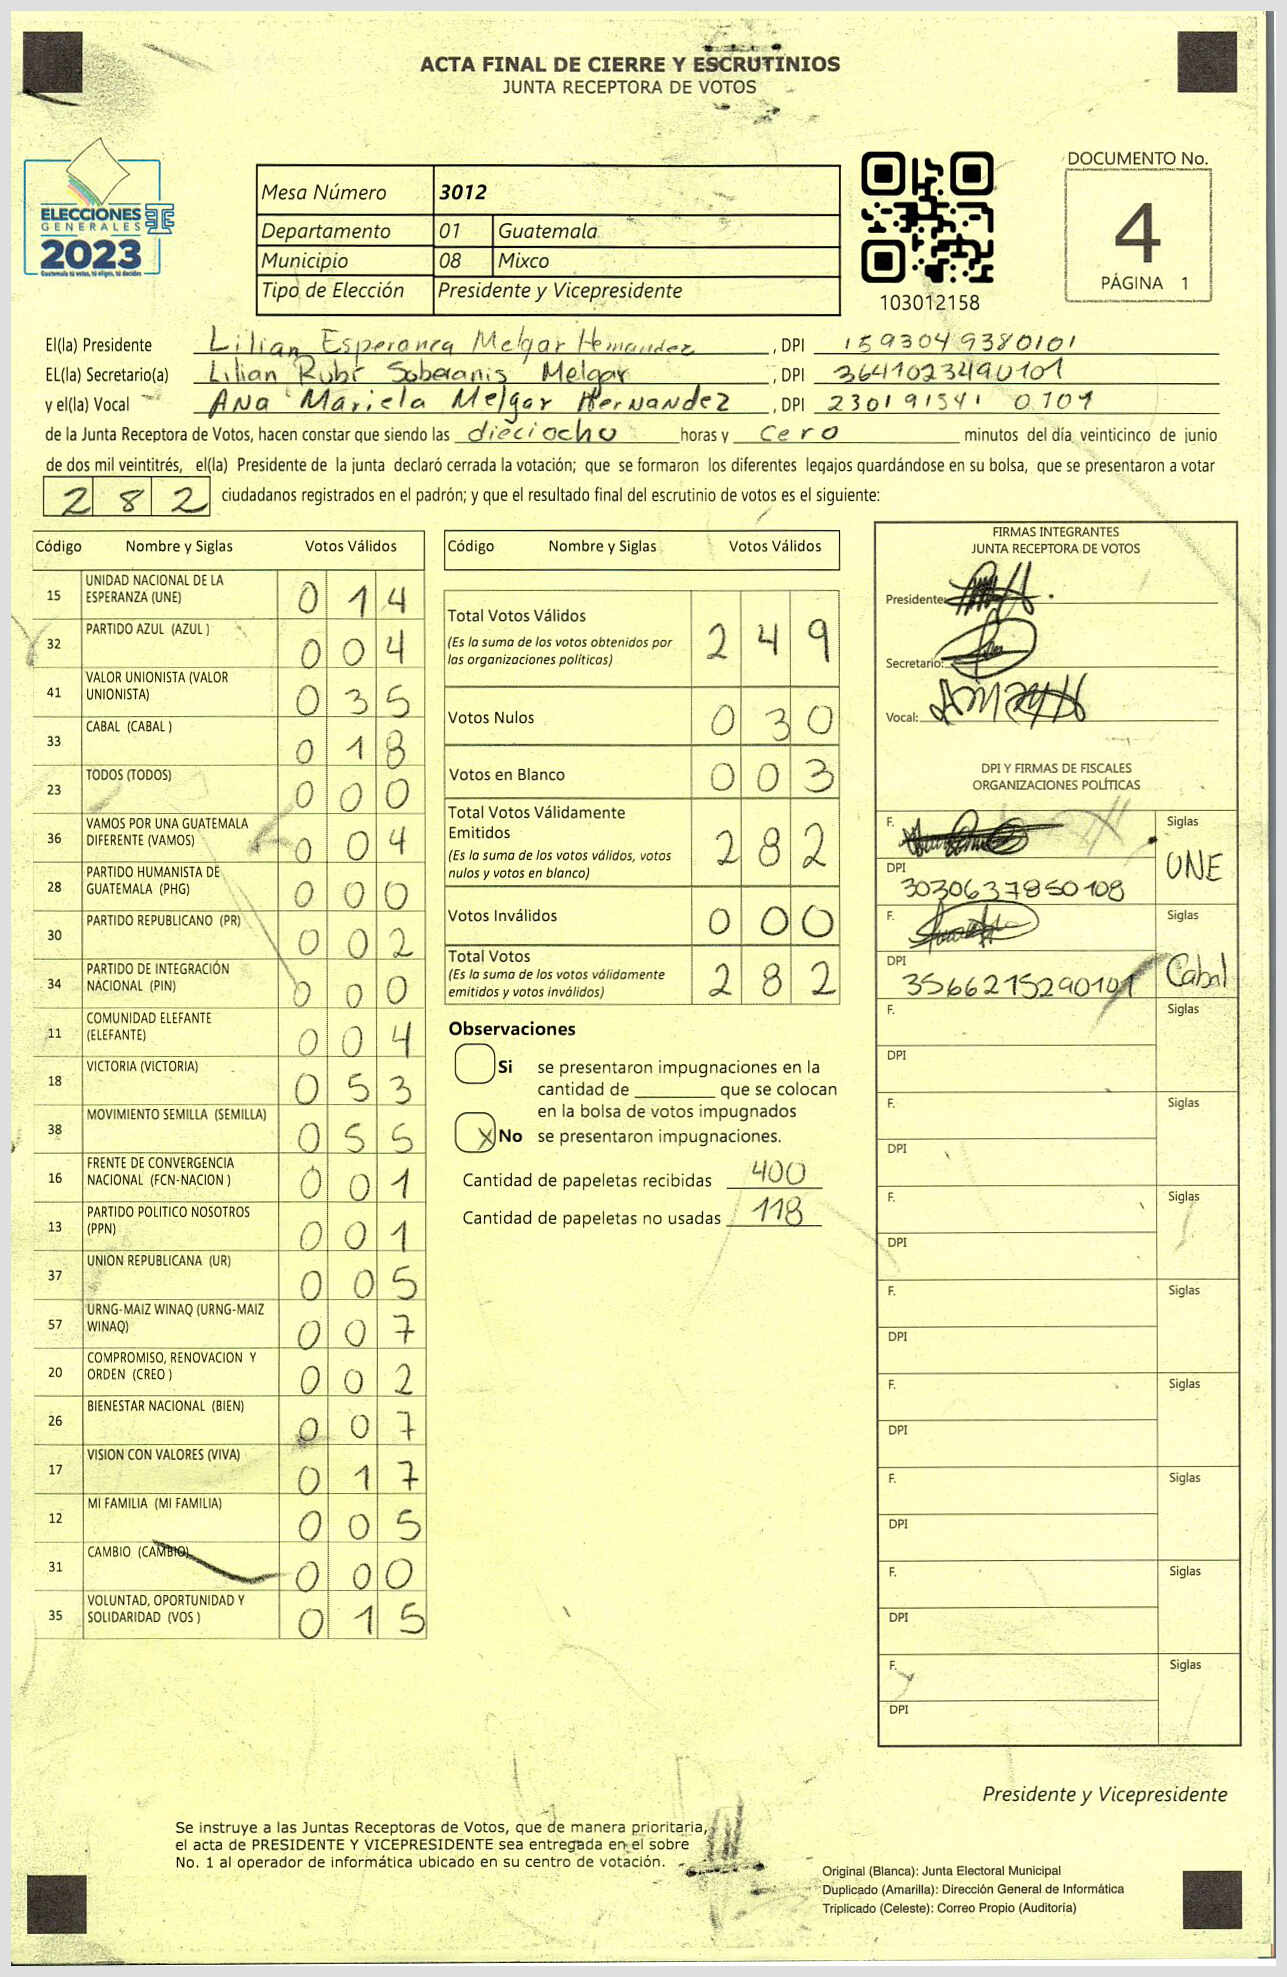 ACTA FINAL DE CIERRE Y ESCRUTINIOS
JUNTA RECEPTORA DE VOTOS
ELECCIONES
GENERALES
2023
Guatemala tú votas, tú eliges, tú decides
Mesa Número 3012
Departamento 01 Guatemala
Municipio 08 Mixco
Tipo de Elección Presidente y Vicepresidente
103012158
DOCUMENTO No.
4
PÁGINA 1
El(la) Presidente Lilian Esperanca Melgar Hernandez, DPI 1593049380101
EL(la) Secretario(a) Lilian Rubí Soberanis Melgar, DPI 3641023490101
y el(la) Vocal Ana Mariela Melgar Hernandez, DPI 230191541 0101
de la Junta Receptora de Votos, hacen constar que siendo las dieciocho horas y cero minutos del día veinticinco de junio
de dos mil veintitrés, el(la) Presidente de la junta declaró cerrada la votación; que se formaron los diferentes legajos guardándose en su bolsa, que se presentaron a votar
282 ciudadanos registrados en el padrón; y que el resultado final del escrutinio de votos es el siguiente:
Código Nombre y Siglas Votos Válidos
15 UNIDAD NACIONAL DE LA ESPERANZA (UNE) 014
32 PARTIDO AZUL (AZUL ) 004
41 VALOR UNIONISTA (VALOR UNIONISTA) 035
33 CABAL (CABAL ) 018
23 TODOS (TODOS) 000
36 VAMOS POR UNA GUATEMALA DIFERENTE (VAMOS) 004
28 PARTIDO HUMANISTA DE GUATEMALA (PHG) 000
30 PARTIDO REPUBLICANO (PR) 002
34 PARTIDO DE INTEGRACIÓN NACIONAL (PIN) 000
11 COMUNIDAD ELEFANTE (ELEFANTE) 004
18 VICTORIA (VICTORIA) 053
38 MOVIMIENTO SEMILLA (SEMILLA) 055
16 FRENTE DE CONVERGENCIA NACIONAL (FCN-NACION ) 001
13 PARTIDO POLITICO NOSOTROS (PPN) 001
37 UNION REPUBLICANA (UR) 005
57 URNG-MAIZ WINAQ (URNG-MAIZ WINAQ) 007
20 COMPROMISO, RENOVACION Y ORDEN (CREO ) 002
26 BIENESTAR NACIONAL (BIEN) 007
17 VISION CON VALORES (VIVA) 017
12 MI FAMILIA (MI FAMILIA) 005
31 CAMBIO (CAMBIO) 000
35 VOLUNTAD, OPORTUNIDAD Y SOLIDARIDAD (VOS ) 015
Código Nombre y Siglas Votos Válidos
Total Votos Válidos 249
(Es la suma de los votos obtenidos por
las organizaciones políticas)
Votos Nulos 030
Votos en Blanco 003
Total Votos Válidamente
Emitidos 282
(Es la suma de los votos válidos, votos
nulos y votos en blanco)
Votos Inválidos 000
Total Votos 282
(Es la suma de los votos válidamente
emitidos y votos inválidos)
Observaciones
Si se presentaron impugnaciones en la
cantidad de ________ que se colocan
en la bolsa de votos impugnados
X No se presentaron impugnaciones.
Cantidad de papeletas recibidas 400
Cantidad de papeletas no usadas 118
FIRMAS INTEGRANTES
JUNTA RECEPTORA DE VOTOS
Presidente:
Secretario:
Vocal:
DPI Y FIRMAS DE FISCALES
ORGANIZACIONES POLÍTICAS
F. Siglas
UNE
DPI
3030637850108
F. Siglas
Cabal
DPI
3566215290101
F. Siglas
DPI
F. Siglas
DPI
F. Siglas
DPI
F. Siglas
DPI
F. Siglas
DPI
F. Siglas
DPI
F. Siglas
DPI
F. Siglas
DPI
Presidente y Vicepresidente
Se instruye a las Juntas Receptoras de Votos, que de manera prioritaria,
el acta de PRESIDENTE Y VICEPRESIDENTE sea entregada en el sobre
No. 1 al operador de informática ubicado en su centro de votación.
Original (Blanca): Junta Electoral Municipal
Duplicado (Amarilla): Dirección General de Informática
Triplicado (Celeste): Correo Propio (Auditoria)